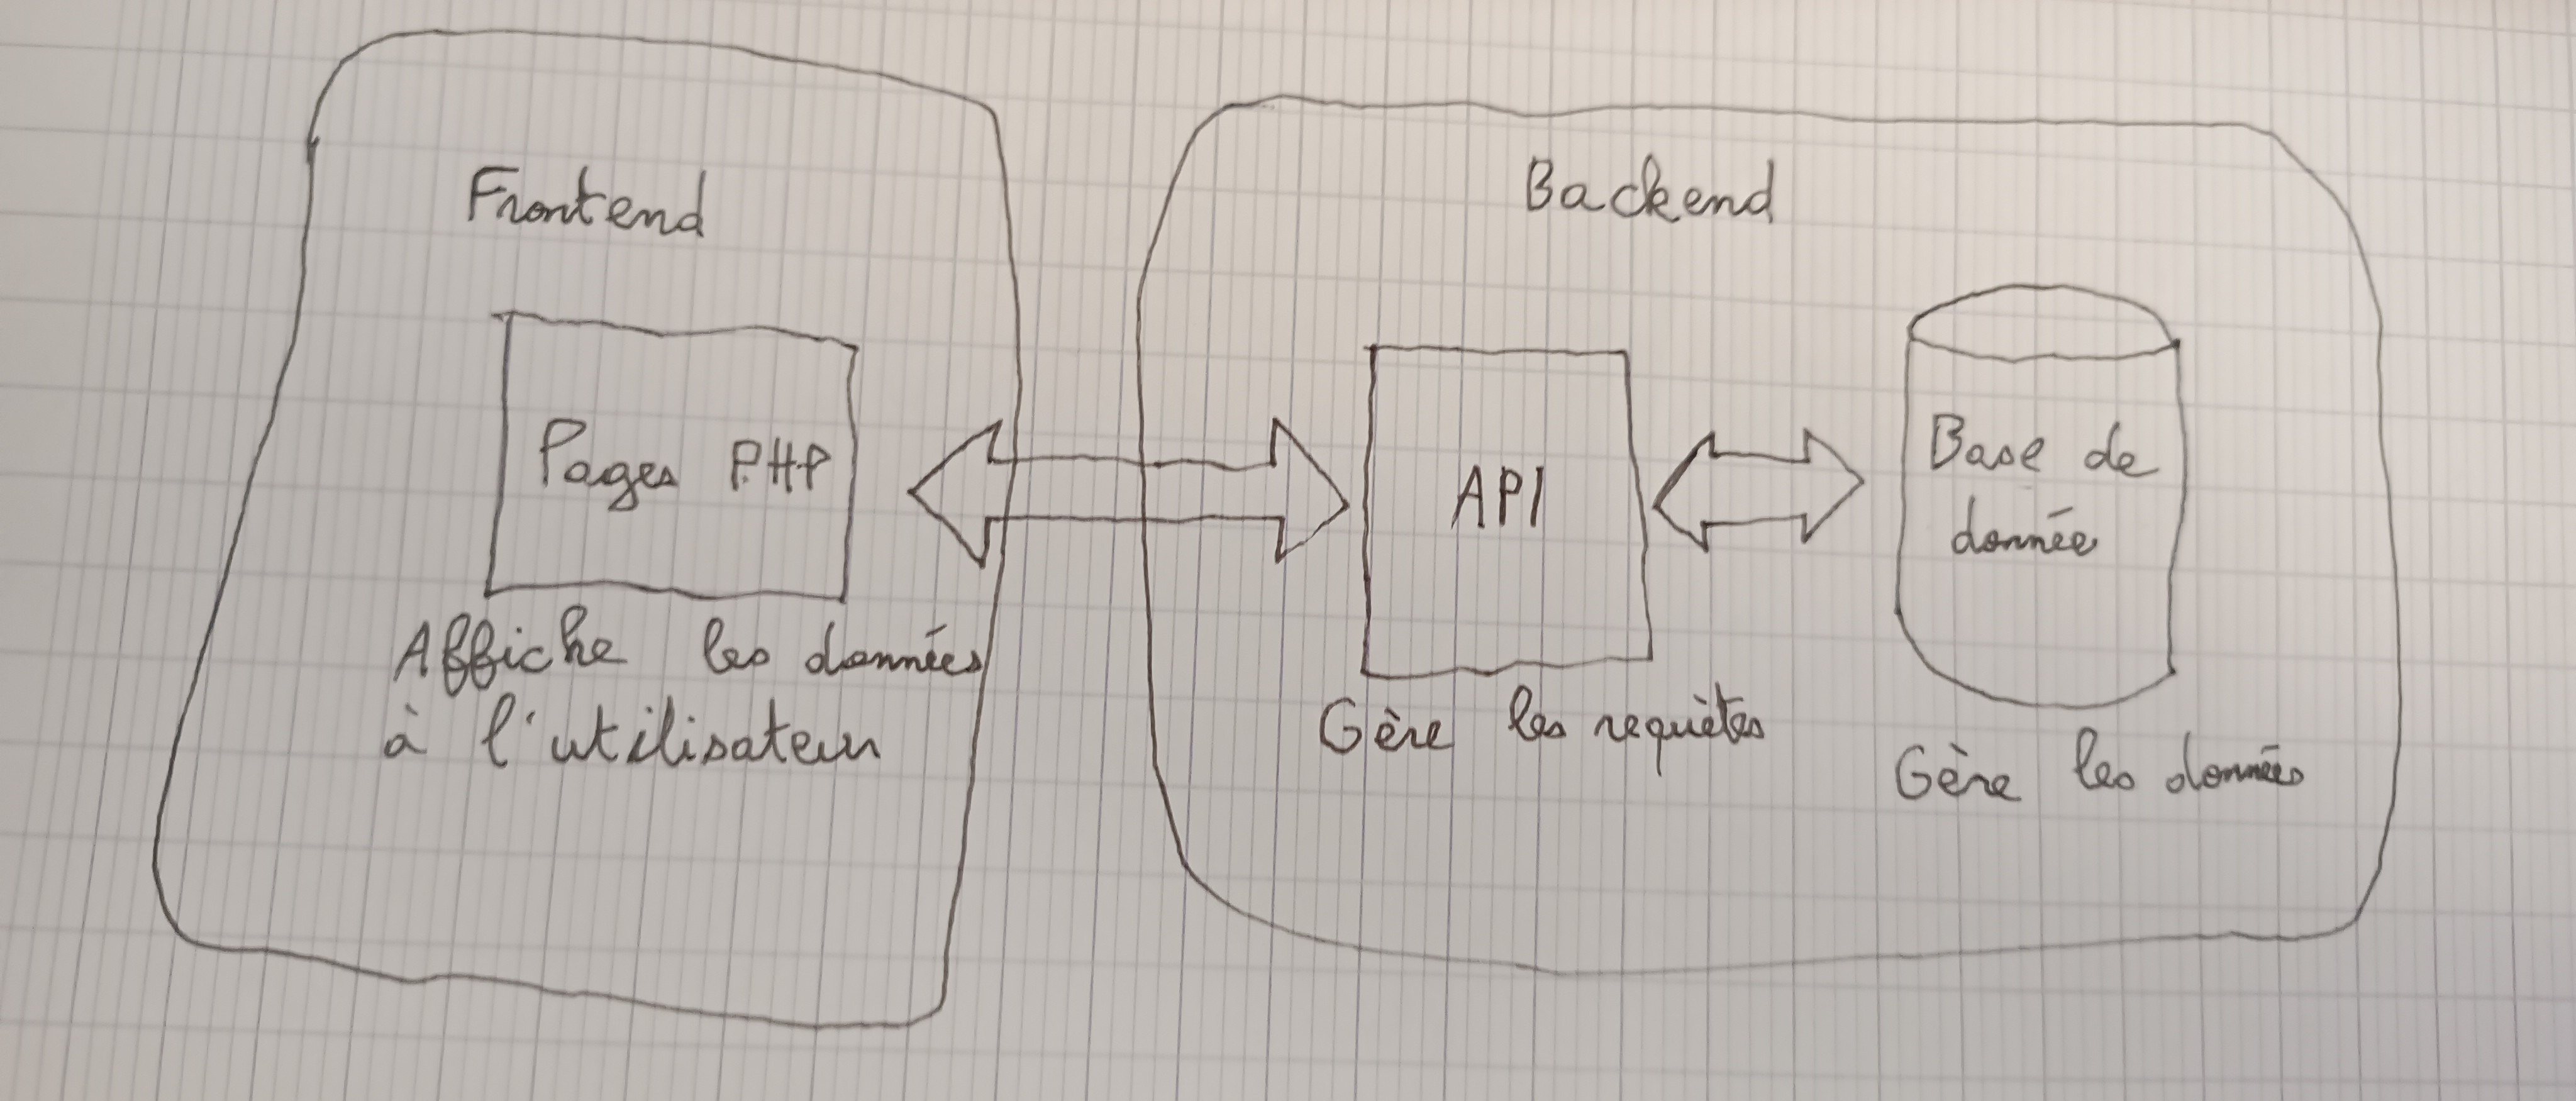 Frontend
Pages PHP
Affiche les données
à l'utilisateur
Backend
API
Gère les requètes
Base de
donnée
Gère les données